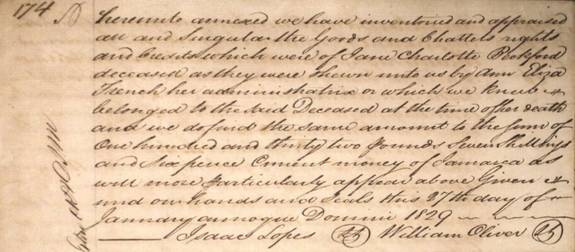 174
hereunto annexed we have inventoried and appraised
all and Singular the Goods and Chattels rights
and Credits which were of Jane Charlotte Beckford
deceased as they were shewn unto us by Ann Eliza
French her administratrix or which we knew
belonged to the said Deceased at the time of her death
and we do find the same amount to the sum of
One hundred and thirty two pounds Seven shillings
and Six pence Current money of Jamaica as
will more Particularly appear above Given
und our hands and Seals this 27th day of
January annoque Domini 1829
Isaac Lopes William Oliver